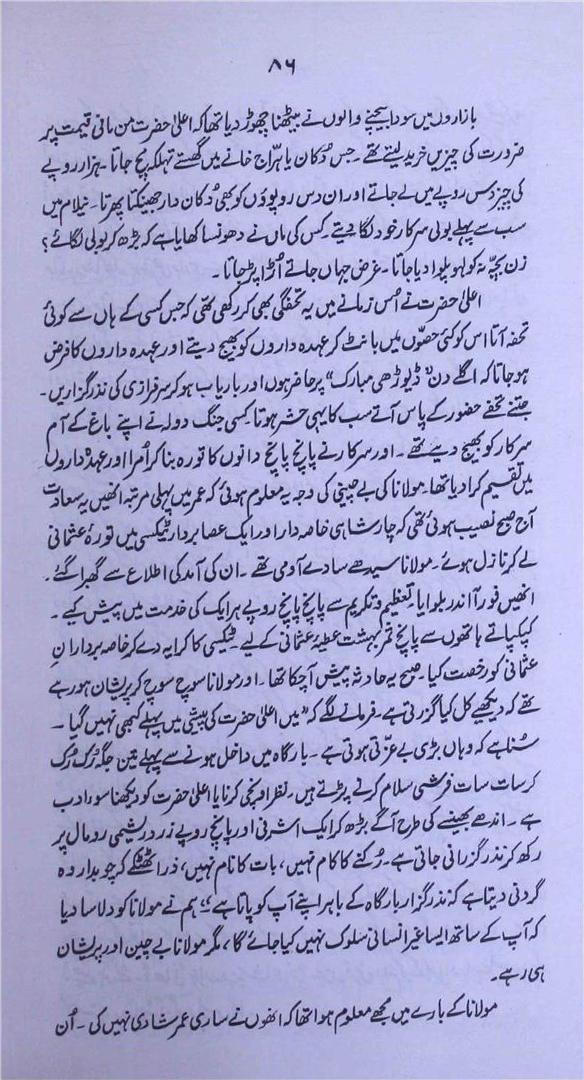 ۸۶
بازاروں میں سودا بیچنے والوں نے بیٹھنا چھوڑ دیا تھا کہ اعلیٰ حضرت من مانی قیمت پر
ضرورت کی چیزیں خرید لیتے تھے۔ جس دُکان یا ہرّاج خانے میں گھستے تہلکہ مچ جاتا۔ ہزار روپے
کی چیز دس روپے میں لے جاتے اور ان دس روپوؤں کو بھی دُکان دار جھینکتا پھرتا۔ نیلام میں
سب سے پہلے بولی سرکار خود لگا دیتے۔ کس کی ماں نے دھونسا کھایا ہے کہ بڑھ کر بولی لگائے؟
زن بچّہ کو لہو پلوا دیا جاتا۔ غرض جہاں جاتے اُڑا پڑ جاتا۔
اعلیٰ حضرت نے اُس زمانے میں یہ تحفگی بھی کر رکھی تھی کہ جس کسی کے ہاں سے کوئی
تحفہ آتا اس کو کئی حصّوں میں بانٹ کر عہدہ داروں کو بھیج دیتے اور عہدہ داروں کا فرض
ہو جاتا کہ اگلے دن "ڈیوڑھی مبارک" پر حاضر ہوں اور باریاب ہو کر سرفرازی کی نذر گزاریں۔
جتنے تحفے حضور کے پاس آتے سب کا یہی حشر ہوتا۔ کسی جنگ دولہ نے اپنے باغ کے آم
سرکار کو بھیج دیے تھے۔ اور سرکار نے پانچ پانچ دانوں کا تورہ بنا کر اُمرا اور عہدہ داروں
میں تقسیم کرا دیا تھا۔ مولانا کی بے چینی کی وجہ یہ معلوم ہوئی کہ عمر میں پہلی مرتبہ انھیں یہ سعادت
آج صبح نصیب ہوئی تھی کہ چار شاہی خاصہ دار اور ایک عصا بردار ٹیکسی میں تورۂ عثمانی
لے کر نازل ہوئے۔ مولانا سیدھے سادے آدمی تھے۔ ان کی آمد کی اطلاع سے گھبرا گئے۔
انھیں فوراً اندر بلوایا۔ تعظیم و تکریم سے پانچ پانچ روپے ہر ایک کی خدمت میں پیش کیے۔
کپکپاتے ہاتھوں سے پانچ ثمر بہشت عطیۂ عثمانی کے لیے۔ ٹیکسی کا کرایہ دے کر خاصہ بردارانِ
عثمانی کو رخصت کیا۔ صبح یہ حادثہ پیش آ چکا تھا۔ اور مولانا سوچ سوچ کر پریشان ہو رہے
تھے کہ دیکھیے کل کیا گزرتی ہے۔ فرمانے لگے کہ "میں اعلیٰ حضرت کی پیشی میں پہلے کبھی نہیں گیا۔
سُنا ہے کہ وہاں بڑی بے عزّتی ہوتی ہے۔ بارگاہ میں داخل ہونے سے پہلے تین جگہ رُک رُک
کر سات سات فرشی سلام کرنے پڑتے ہیں۔ نظر اونچی کرنا یا اعلیٰ حضرت کو دیکھنا سوء ادب
ہے۔ اندھے بھینسے کی طرح آگے بڑھ کر ایک اشرفی اور پانچ روپے زرد ریشمی رومال پر
رکھ کر نذر گزرانی جاتی ہے۔ رُکنے کا کام نہیں، بات کا نام نہیں، ذرا ٹھٹکے کہ چوبدار وہ
گردنی دیتا ہے کہ نذر گزار بارگاہ کے باہر اپنے آپ کو پاتا ہے" ہم نے مولانا کو دلاسا دیا
کہ آپ کے ساتھ ایسا غیر انسانی سلوک نہیں کیا جائے گا، مگر مولانا بے چین اور پریشان
ہی رہے۔
مولانا کے بارے میں مجھے معلوم ہوا تھا کہ انھوں نے ساری عمر شادی نہیں کی۔ اُن